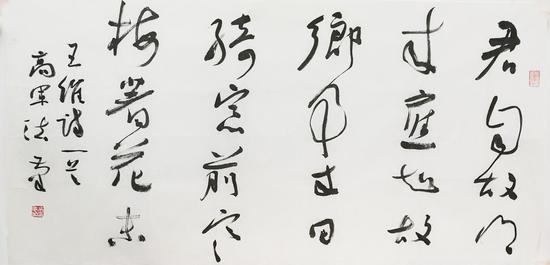 君自故鄉
來應知故
鄉事來日
綺窗前寒
梅著花未
王維詩一首
高軍法書